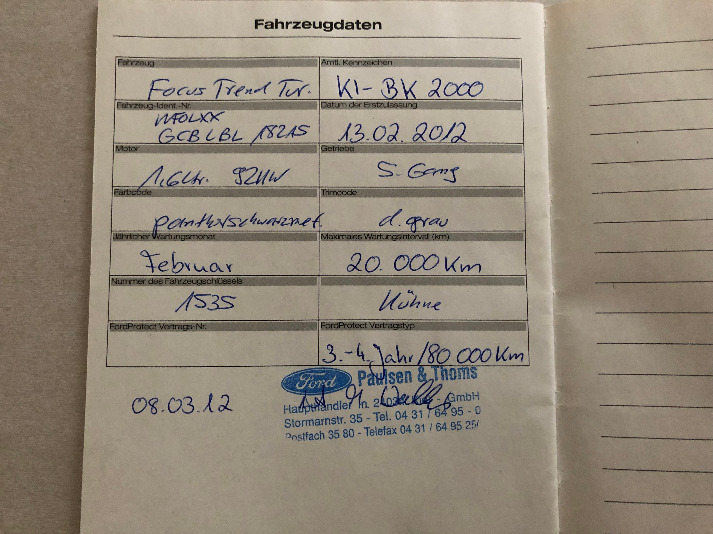 Fahrzeugdaten
Fahrzeug Amtl. Kennzeichen
Focus Trend Tur. KI-BK 2000
Fahrzeug-Ident.-Nr. Datum der Erstzulassung
WF0LXX
GCBLBL 18215 13.02.2012
Motor Getriebe
1,6Ltr. 92KW 5. Gang
Farbcode Trimcode
pantherschwarzmet. d.grau
Jährlicher Wartungsmonat Maximales Wartungsintervall (km)
Februar 20.000 Km
Nummer des Fahrzeugschlüssels
1535 Kühne
FordProtect Vertrags-Nr. FordProtect Vertragstyp
3.-4. Jahr/80 000 Km
Ford Paulsen & Thoms
08.03.12
Haupthändler in GmbH
Stormarnstr. 35 - Tel. 04 31 / 64 95 - 0
Postfach 35 80 - Telefax 04 31 / 64 95 25/